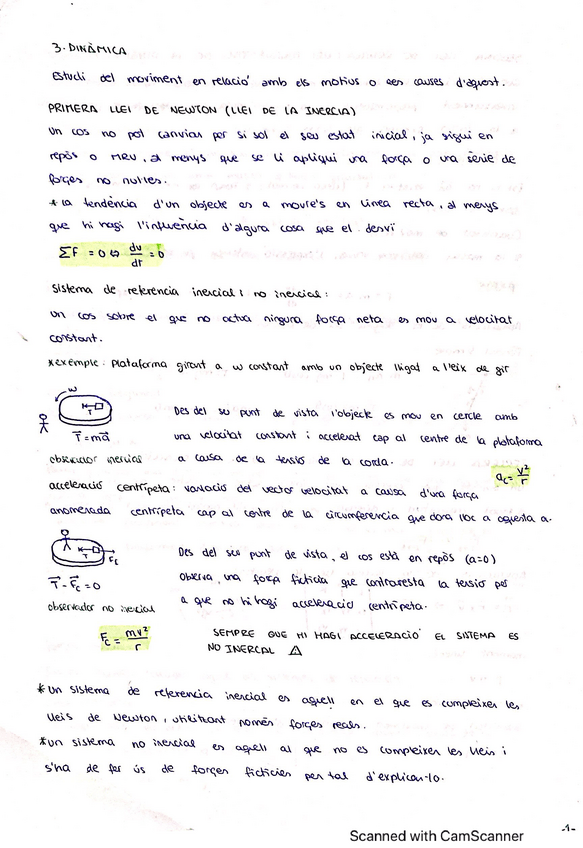 3. DINÀMICA
Estudi del moviment en relació amb els motius o les causes d'aquest.
PRIMERA LLEI DE NEWTON (LLEI DE LA INERCIA)
Un cos no pot canviar per si sol el seu estat inicial, ja sigui en
repòs o MRU, al menys que se li apliqui una força o una sèrie de
forçes no nul·les.
* La tendència d'un objecte es a moure's en linea recta, al menys
que hi hagi l'influència d'alguna cosa que el desvï
ΣF = 0 ⇔ dv/dt = 0
Sistema de referencia inercial i no inercial:
Un cos sobre el que no actua ninguna força neta es mou a velocitat
constant.
*exemple: Plataforma girant a w constant amb un objecte lligat a l'eix de gir
w
T
T⃗ = ma⃗
observador inercial
Des del su punt de vista l'objecte es mou en cercle amb
una velocitat constant i accelerat cap al centre de la plataforma
a causa de la tensio de la corda.
ac = v²/r
acceleració centrípeta: variacio del vector velocitat a causa d'una força
anomenada centrípeta cap al centre de la circumferencia que dona lloc a aquesta a.
T
Fc
T⃗ - F⃗c = 0
observador no inercial
Des del seu punt de vista, el cos està en repòs (a=0)
Observa, una força ficticia que contraresta la tensio per
a que no hi hagi acceleracio centrípeta.
Fc = mv²/r
SEMPRE QUE HI HAGI ACCELERACIÓ EL SISTEMA ES
NO INERCAL ⚠
*Un sistema de referencia inercial es aquell en el que es cumpleixen les
lleis de Newton, utilitzant només forçes reals.
*un sistema no inercial es aquell al que no es cumpleixen les lleis i
s'ha de fer ús de forçes ficticies per tal d'explicar-lo.
-1-
Scanned with CamScanner